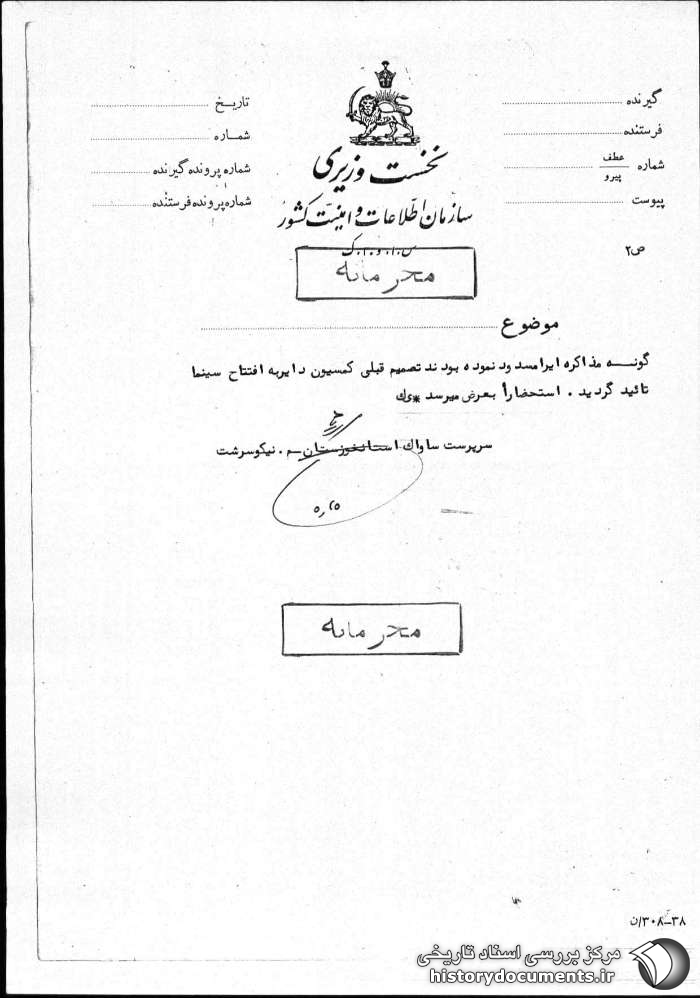 گیرنده
فرستنده
شماره عطف
پیرو
پیوست
نخست وزیری
سازمان اطلاعات و امنیت کشور
س.ا.و.ا.ک
تاریخ
شماره
شماره پرونده گیرنده
شماره پرونده فرستنده
ص۲
محرمانه
موضوع
گونه مذاکره ایرا مسدود نموده بودند تصمیم قبلی کمسیون دایر به افتتاح سینما
تائید گردید. استحضاراً بعرض میرسد *ی‌ک
سرپرست ساواک استانخوزستان - م. نیکوسرشت
محرمانه
۳۰۸-۳۸/ن
مرکز بررسی اسناد تاریخی
historydocuments.ir